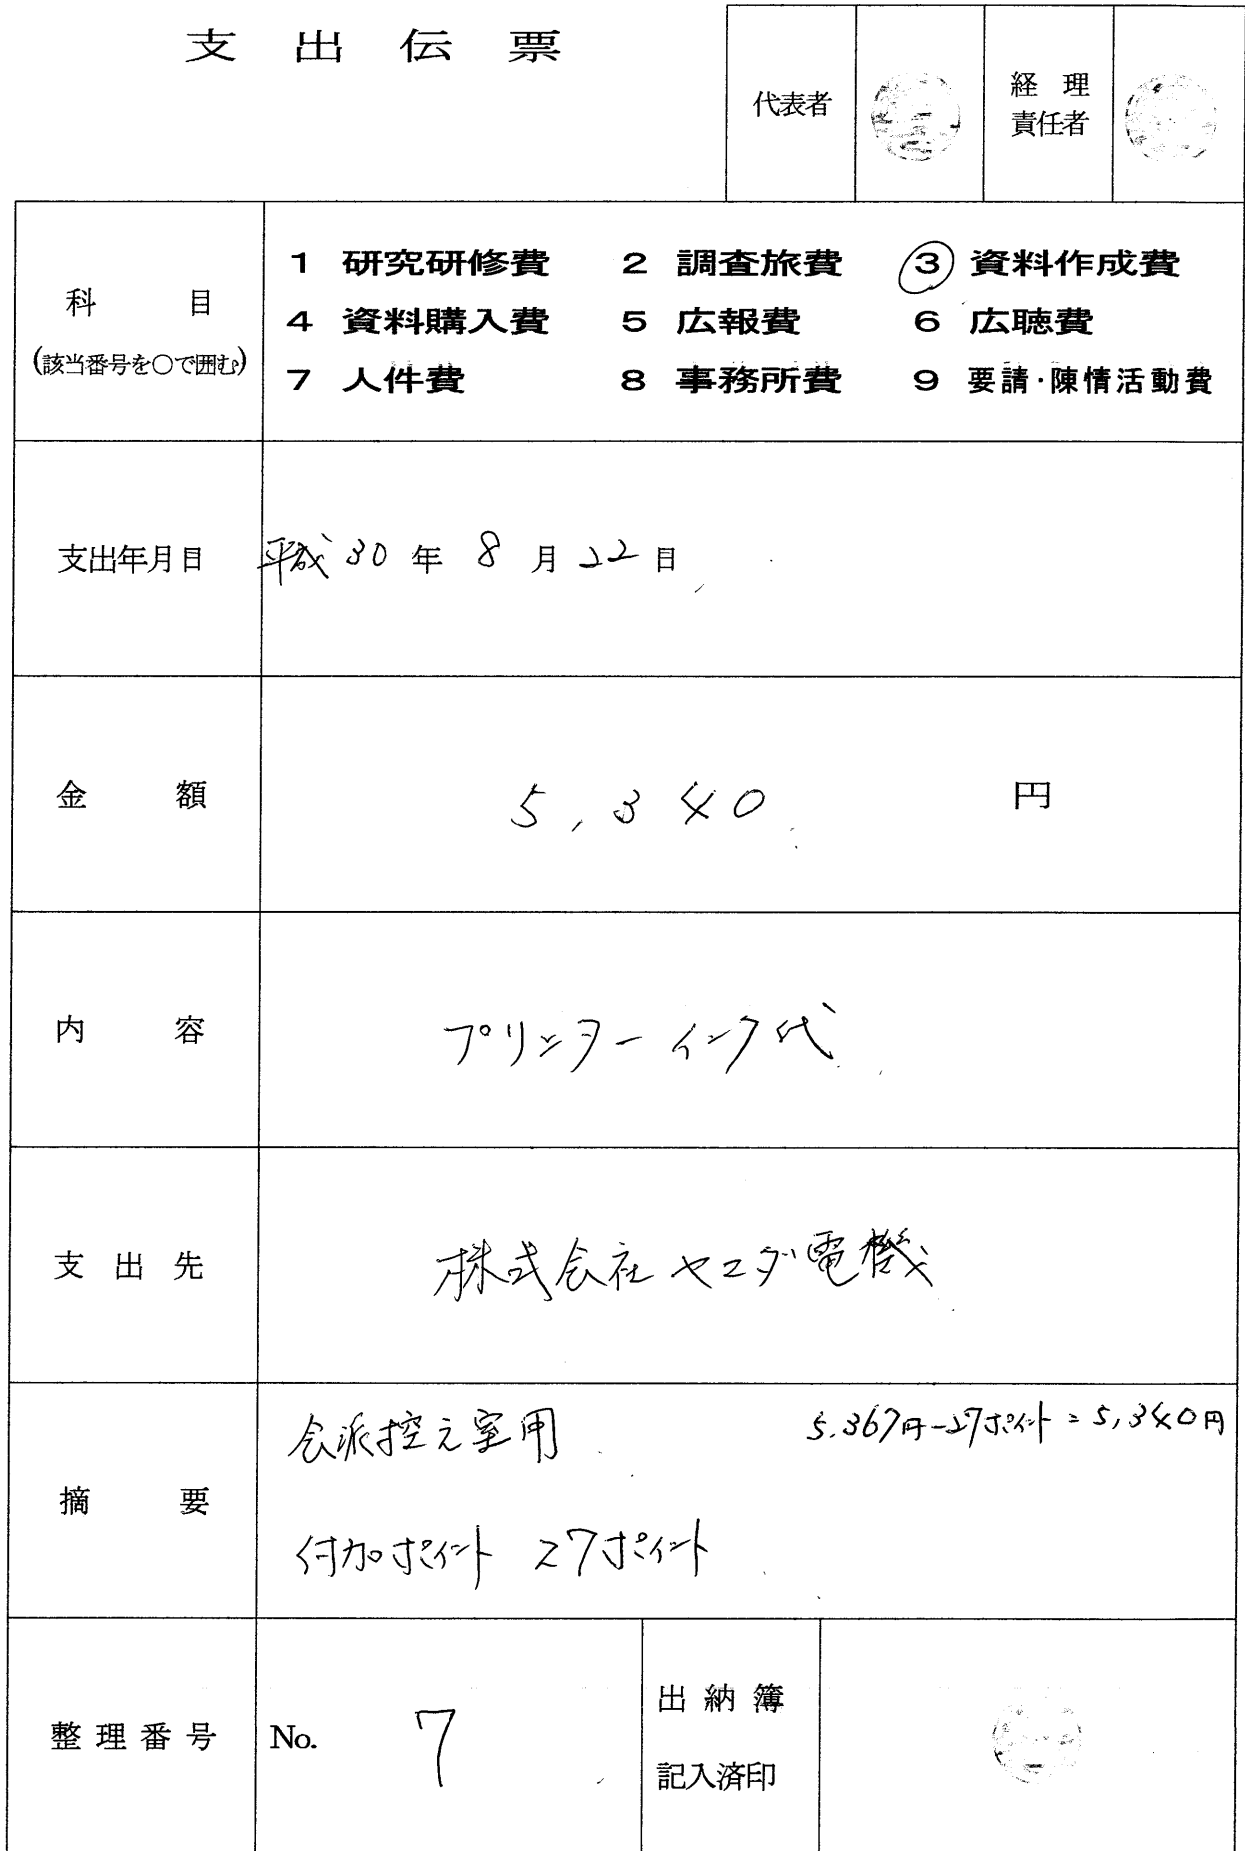 支出伝票
代表者
経理
責任者
科目
(該当番号を○で囲む)
1 研究研修費 2 調査旅費 ③ 資料作成費
4 資料購入費 5 広報費 6 広聴費
7 人件費 8 事務所費 9 要請・陳情活動費
支出年月日 平成 30 年 8 月 22 日
金額 5,340 円
内容 プリンターインク代
支出先 株式会社ヤマダ電機
摘要
会派控え室用 5,367円-27ポイント=5,340円
付加ポイント 27ポイント
整理番号 No. 7
出納簿
記入済印